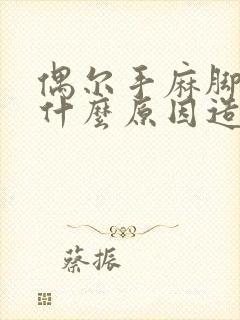 偶尔手麻脚
什麼原因造
蔡振